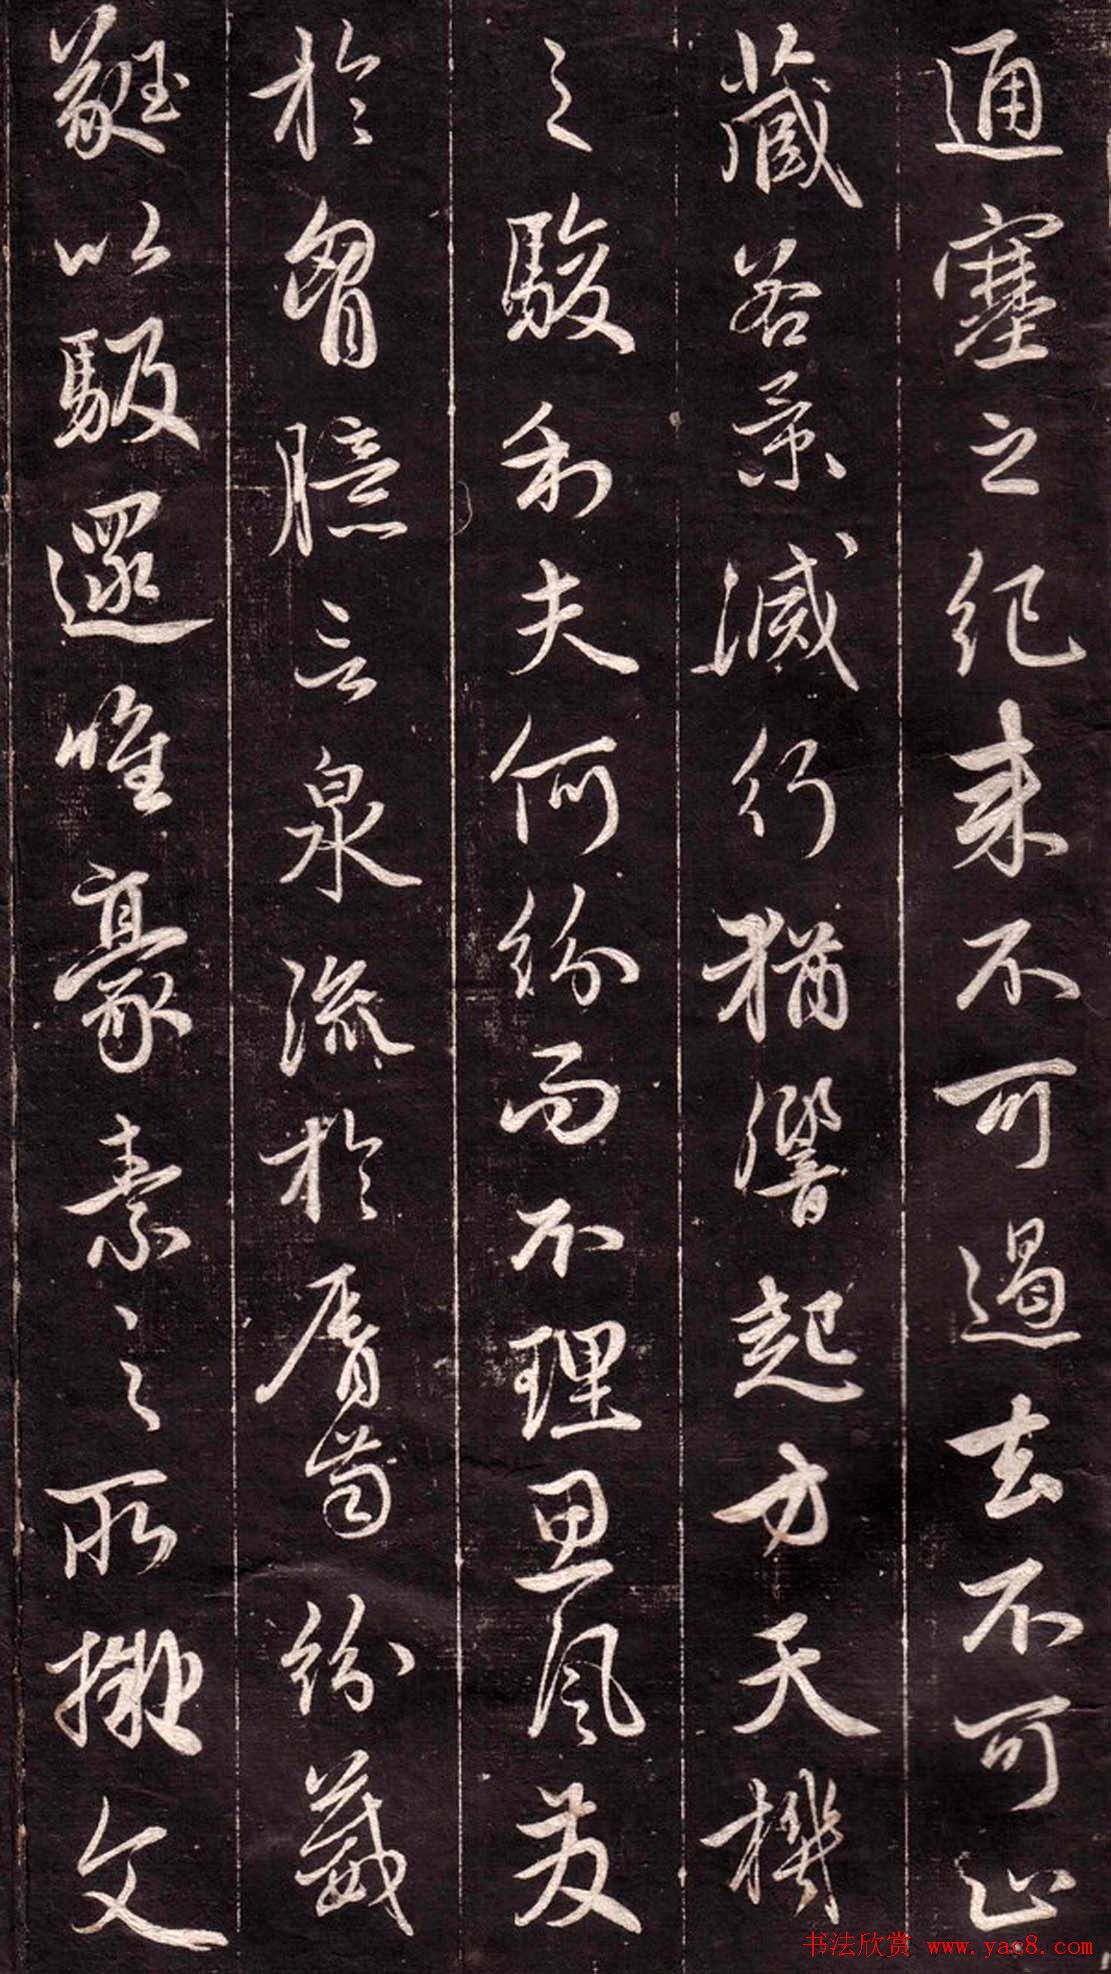 通塞之紀来不可遏去不可止
藏若景滅行猶響起方天機
之駿利夫何紛而不理思風發
於胷臆言泉流於脣齒紛葳
蕤以馺遝唯豪素之所擬文
书法欣赏 www.yac8.com